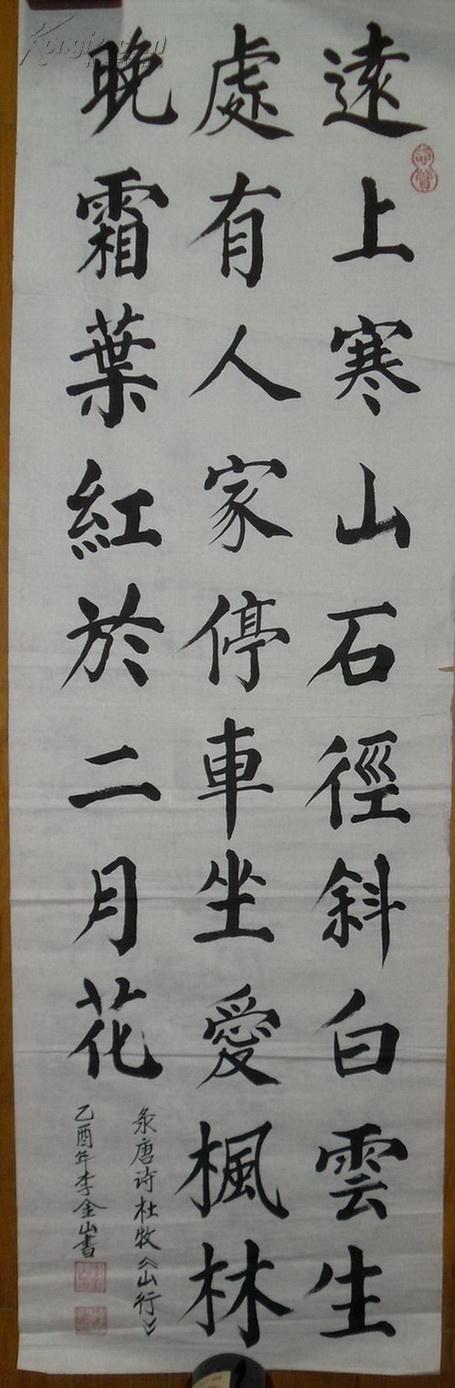 遠上寒山石徑斜白雲生
處有人家停車坐愛楓林
晚霜葉紅於二月花
录唐诗杜牧《山行》
乙酉年李金山書